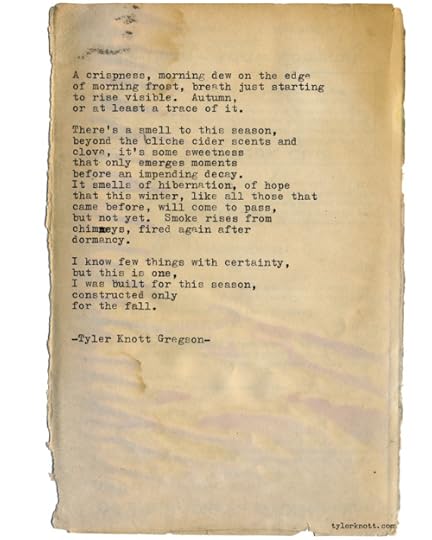 A crispness, morning dew on the edge
of morning frost, breath just starting
to rise visible.  Autumn,
or at least a trace of it.
There's a smell to this season,
beyond the cliche cider scents and
clove, it's some sweetness
that only emerges moments
before an impending decay.
It smells of hibernation, of hope
that this winter, like all those that
came before, will come to pass,
but not yet.  Smoke rises from
chimneys, fired again after
dormancy.
I know few things with certainty,
but this is one,
I was built for this season,
constructed only
for the fall.
-Tyler Knott Gregson-
tylerknott.com